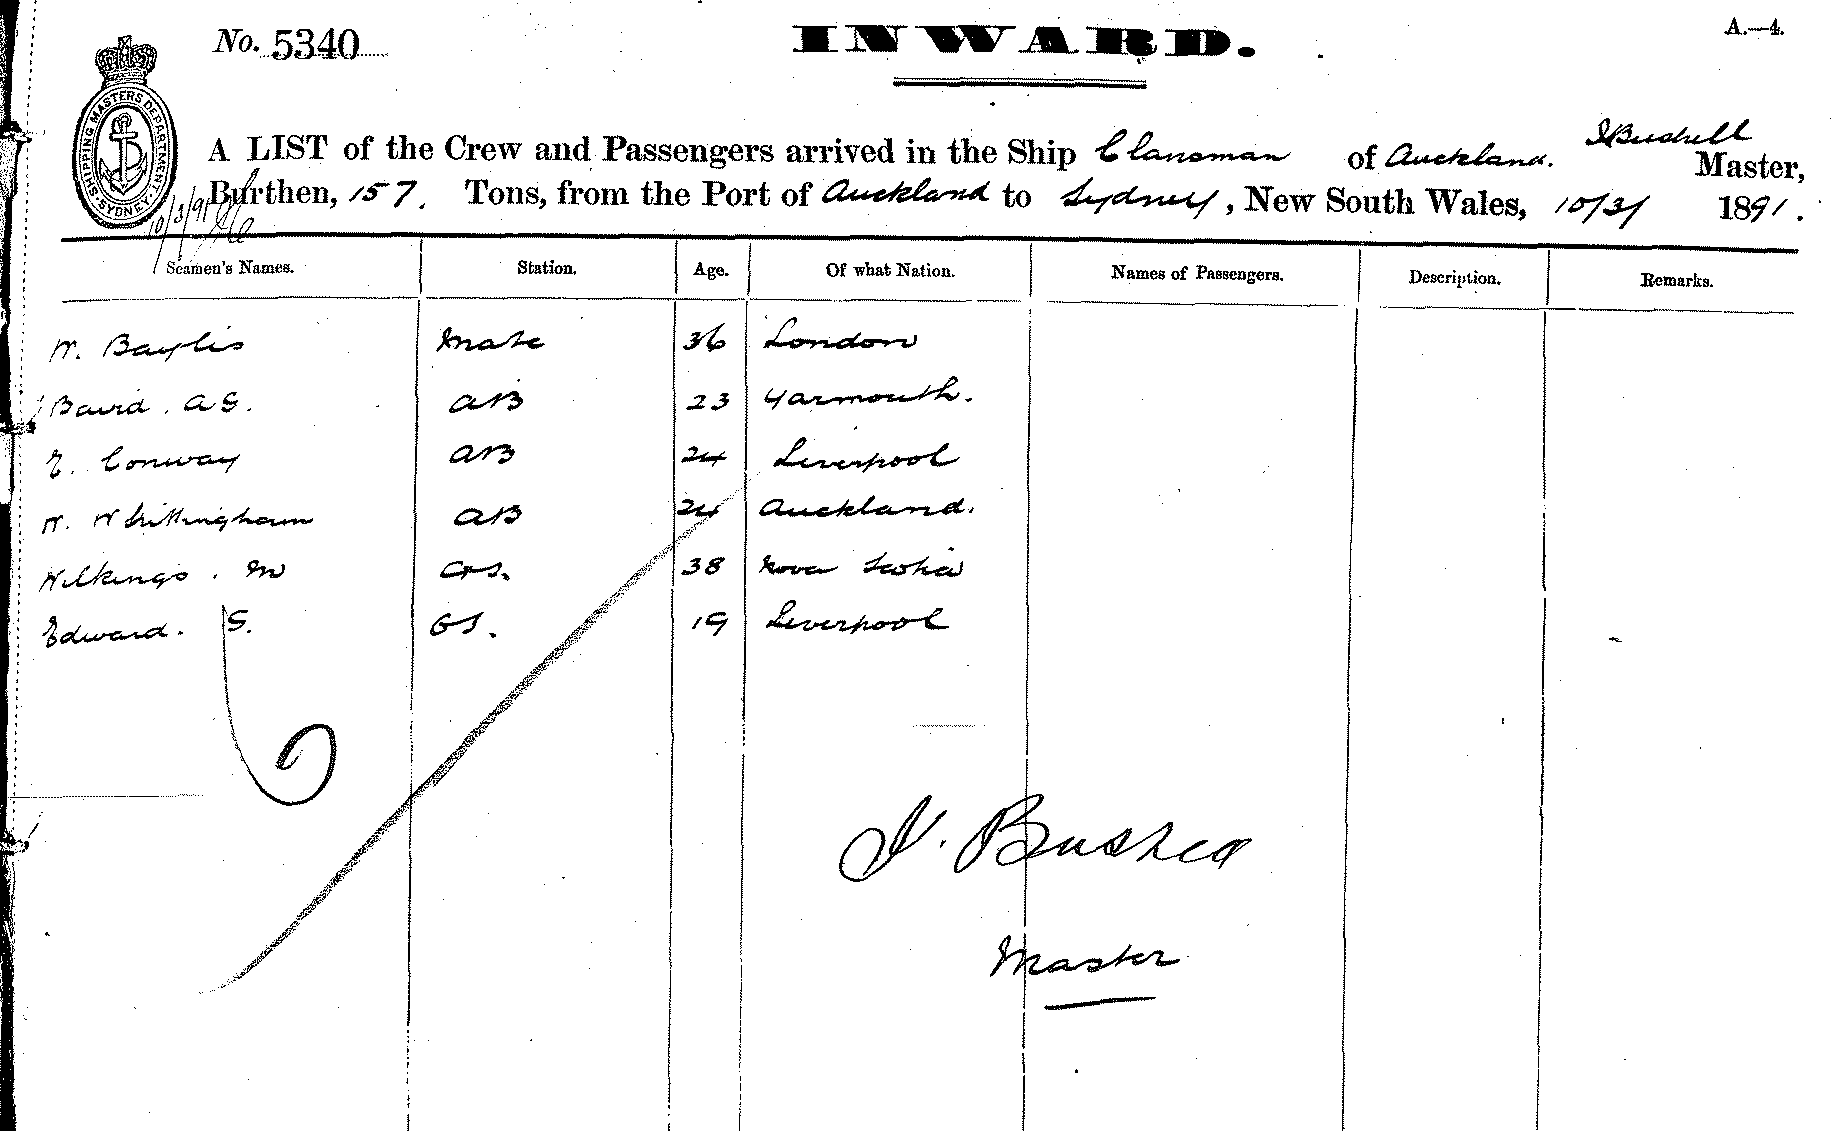 No. 5340
INWARD.
A.—4.
SHIPPING MASTERS DEPARTMENT. SYDNEY.
A LIST of the Crew and Passengers arrived in the Ship Clansman of Auckland. Bushell Master,
Burthen, 157. Tons, from the Port of Auckland to Sydney, New South Wales, 10/3/ 1891.
10/3/91
Seamen's Names. Station. Age. Of what Nation. Names of Passengers. Description. Remarks.
W. Baylis Mate 36 London
Baird. A S. AB 23 Yarmouth.
E. Conway AB 24 Liverpool
W. Whittingham AB 24 Auckland.
Wilkings. M 38 Nova Scotia
Edward. S. 19 Liverpool
Bushell
Master